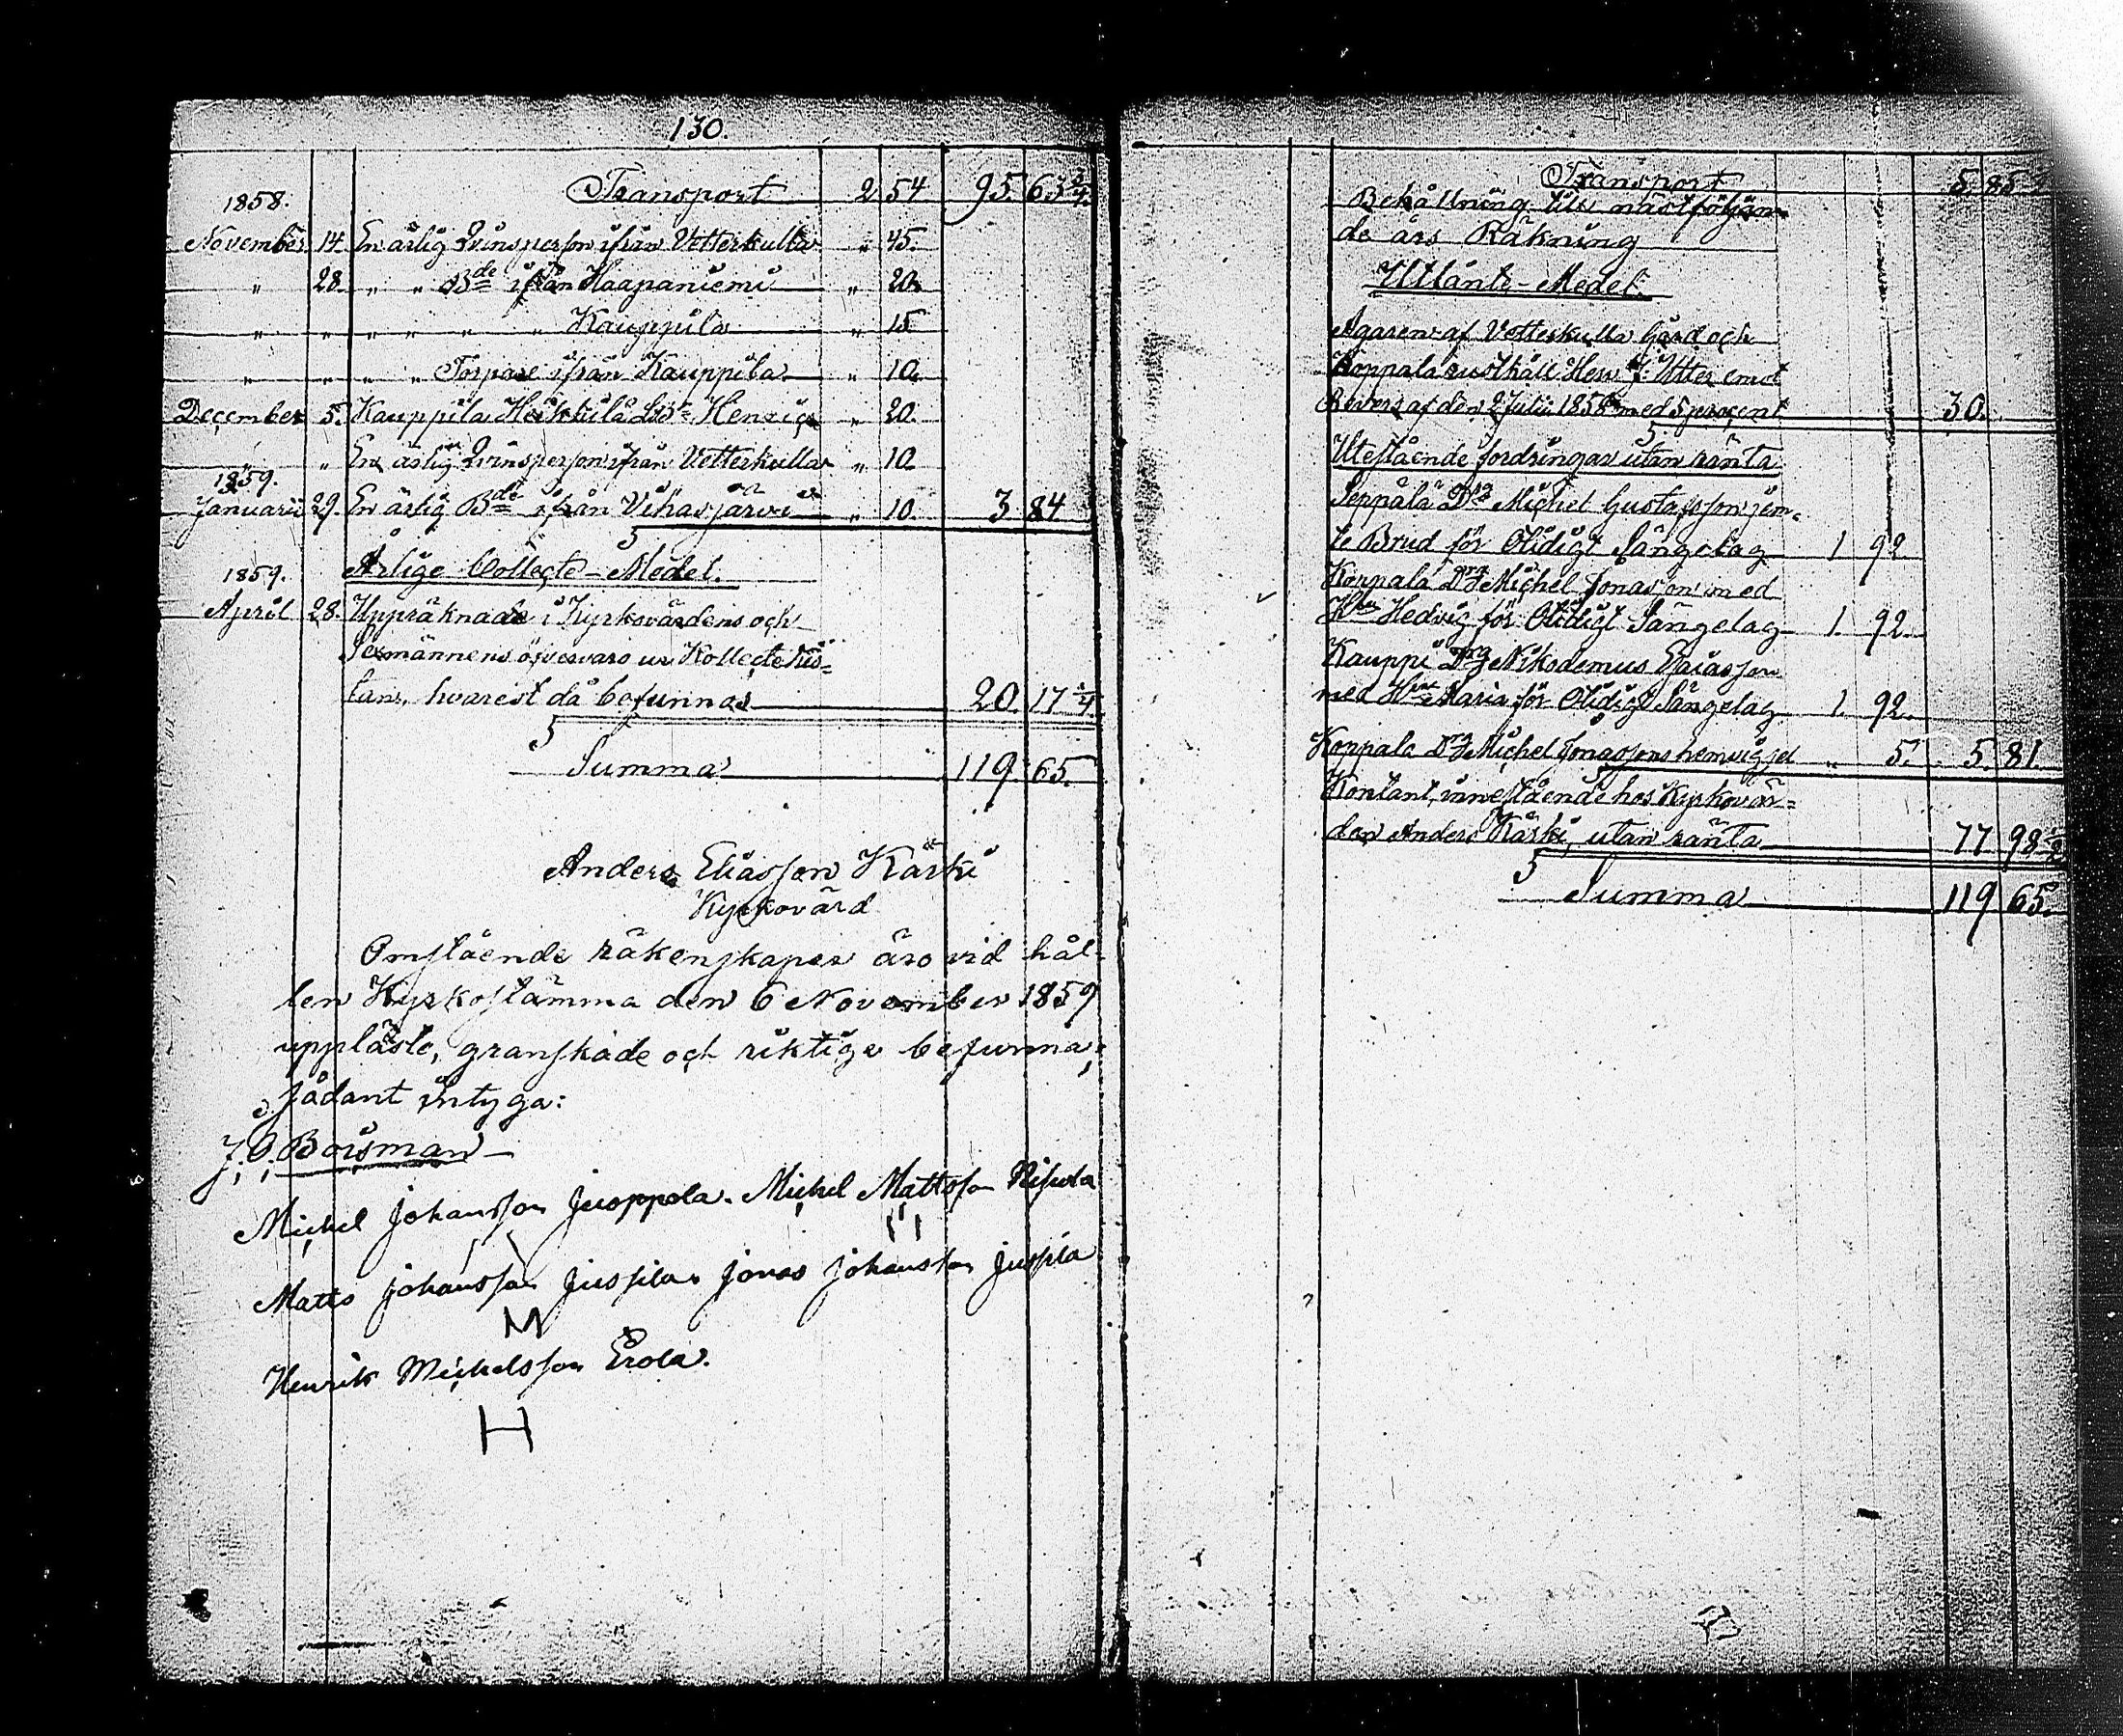 130.
1858. Transport 2 54 95. 63 3/4.
November 14. En ärlig Qvinsperson ifrån Vetterkulla " 45.
" 28 " " Bde ifrån Haapaniemi " 20.
" " " " " " Kauppila " 15
" " " " Torpare ifrån Kauppila " 10.
December 5. Kauppila Heikkilä Henric " 20.
" En ärlig Qvinsperson ifrån Vetterkulla " 10
1859.
Januarii 29. En ärlig Bde ifrån Vihasjärvi " 10. 3. 84
Årlige Collecte-Medel.
1859.
April 28. Uppräknade i Kyrkovärdens och
Sexmännens öfvervaro ur Kollecte kis=
tan, hvarest då befunnos 20. 17 1/4.
Summa 119. 65.
Anders Eliasson Kärki
Kyrkovärd
Omstående räkenskaper äro vid hål-
len Kyrkostämma den 6 November 1859
uppläste, granskade och riktige befunna;
sådant intyga:
J. O. Boisman
Michel Johansson Juoppola. Michel Mattsson
Matts Johansson Jussila. Jonas Johansson Jussila
M
Henrik Michelsson Erola.
H
Transport 5 85
Behållning till nästföljan=
de års Räkning
Utlånte-Medel.
Ägaren af Vetterkulla Gård och
Koppala rusthåll Herr Utter emot
Revers af den 2 Julii 1858 med 5 procent 30.
Utestående fordringar utan ränta
Seppälä Michel Gustafsson jem=
te Brud för Otidigt Sängelag 1. 92
Koppala Drg Michel Jonasson med
Hu Hedvig för Otidigt Sängelag 1. 92.
Kauppi Drg Nikodemus Esaiasson
med Maria för Otidigt Sängelag 1. 92.
Koppala Drg Michel Jonassons hemvigsel " 5. 5. 81.
Kontant, innestående hos Kyrkovär=
den Anders Kärki, utan ränta 77 98 1/2
Summa 119 65.